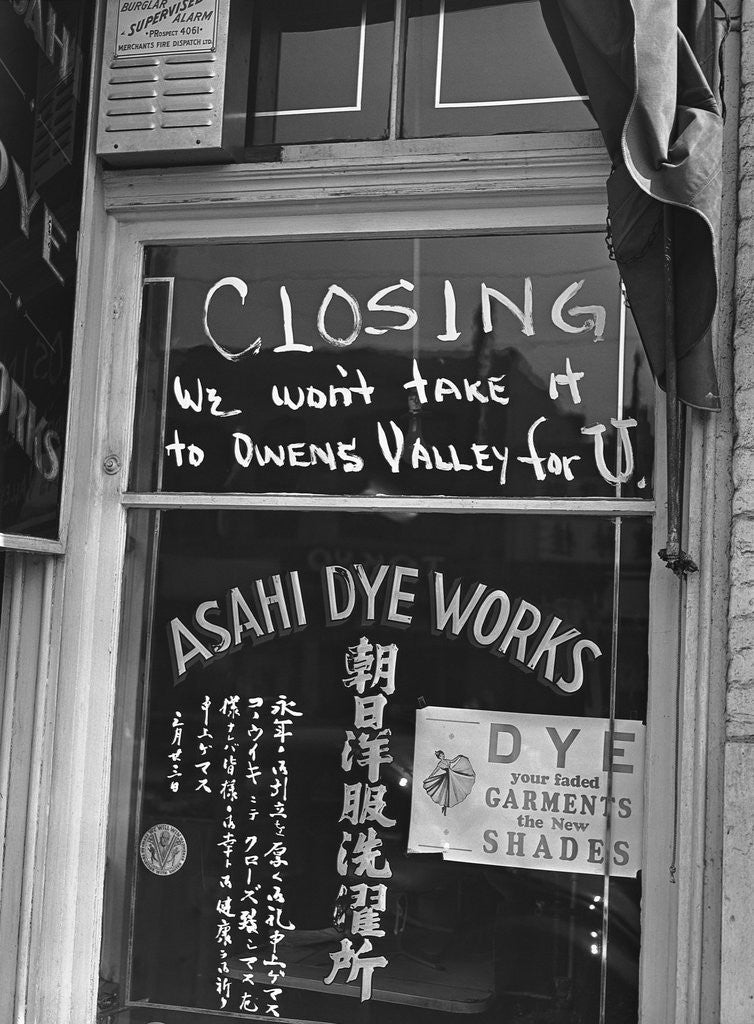 BURGLAR
SUPERVISED
ALARM
PROSPECT 4061
MERCHANTS FIRE DISPATCH LTD
ASAHI
DYE
WORKS
CLOSING
WE WON'T TAKE IT
to OWENS VALLEY for U.
ASAHI DYE WORKS
朝日洋服洗濯所
永年ノ御引立を厚く御礼申上ゲマス
コノウイキニテクローズ致シマス
様ナレバ皆様ノ御幸ト御健康ヲ御祈り
申上ゲマス
三月廿三日
DYE
your faded
GARMENTS
the New
SHADES